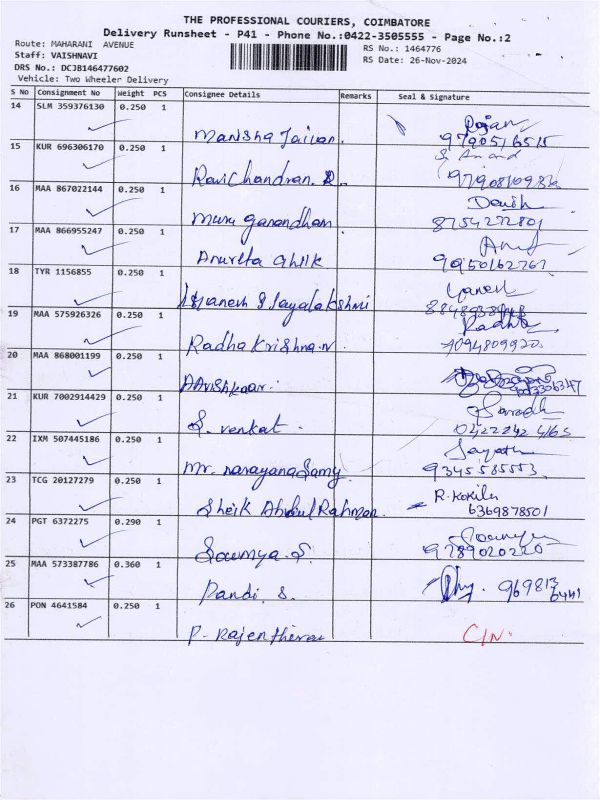 THE PROFESSIONAL COURIERS, COIMBATORE
Delivery Runsheet - P41 - Phone No.:0422-3505555 - Page No.:2
Route: MAHARANI AVENUE
RS No.: 1464776
Staff: VAISHNAVI
RS Date: 26-Nov-2024
DRS No.: DCJB146477602
Vehicle: Two Wheeler Delivery
S No Consignment No Weight PCS Consignee Details Remarks Seal & Signature
14 SLM 359376130 0.250 1
Mansha Rajan
9790516515
15 KUR 696306170 0.250 1
S. Anand
Ravichandran. R.
16 MAA 867022144 0.250 1
Muru ganandham
8754272801
17 MAA 866955247 0.250 1
Anurita
9950162761
18 TYR 1156855 0.250 1
Jayalakshmi
19 MAA 575926326 0.250 1 Radha
Radha Krishnan
7094809920
20 MAA 868001199 0.250 1
AAvishkaar.
21 KUR 7002914429 0.250 1
S. venkat.
0422 242 4165
22 IXM 507445186 0.250 1
Mr. narayana Samy
9345585553
23 TCG 20127279 0.250 1 R. Kokila
Sheik Abdul Rahman
6369878501
24 PGT 6372275 0.290 1
Soumya. S.
9789020220
25 MAA 573387786 0.360 1
Pandi. S.
969813
6441
26 PON 4641584 0.250 1
P. Rajentheran
C/N.